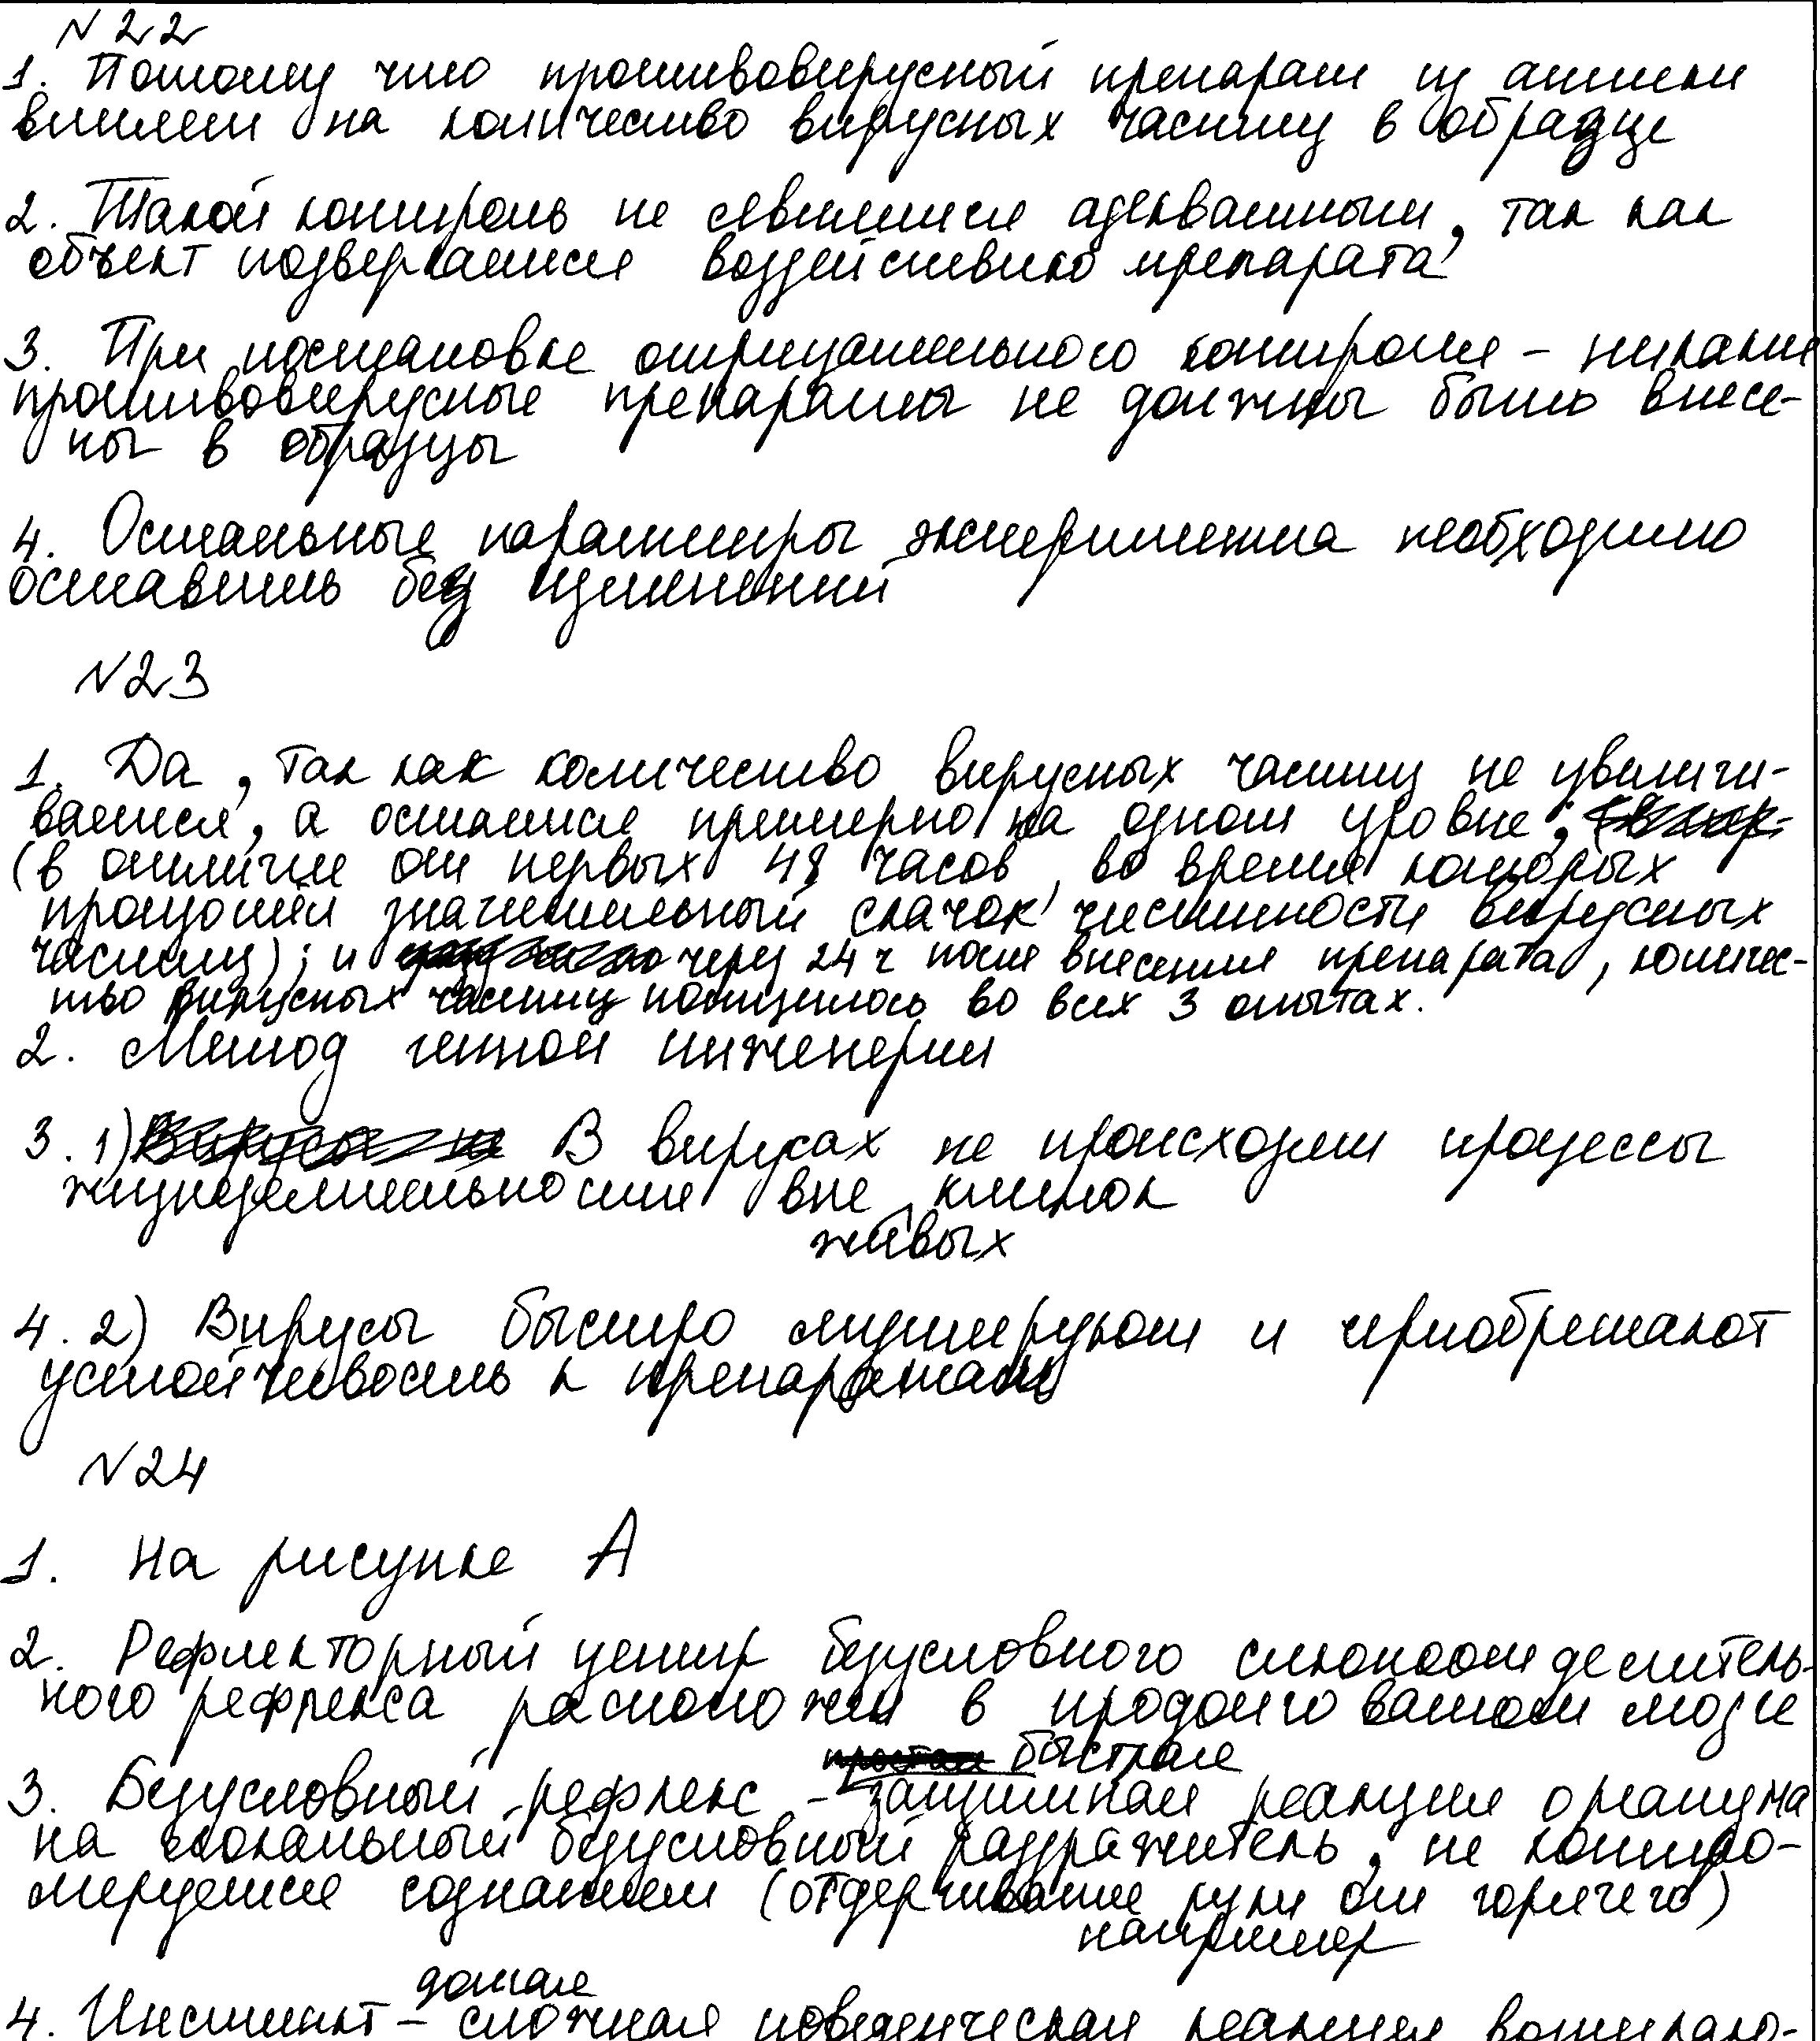 N 22
1. Потому что противовирусный препарат из аптеки
влияет на количество вирусных частиц в образце
2. Такой контроль не является адекватным, так как
объект подвергается воздействию препарата
3. При постановке отрицательного контроля – никакие
противовирусные препараты не должны быть внесе-
ны в образцы
4. Остальные параметры эксперимента необходимо
оставить без изменений
N23
1. Да, так как количество вирусных частиц не увеличи-
вается, а остается примерно на одном уровне;
(в отличие от первых 48 часов, во время которых
произошёл значительный скачок численности вирусных
частиц); и через 24 ч после внесения препарата, количес-
тво вирусных частиц понизилось во всех 3 опытах.
2. Метод генной инженерии
3. 1) В вирусах не происходят процессы
жизнедеятельности вне живых клеток
4. 2) Вирусы быстро мутируют и приобретают
устойчивость к препаратам
N24
1. На рисунке А
2. Рефлекторный центр безусловного слюноотделитель-
ного рефлекса расположен в продолговатом мозге
3. Безусловный рефлекс – быстрая защитная реакция организма
на локальный безусловный раздражитель, не контро-
лируется сознанием (отдергивание руки от горячего)
например
4. Инстинкт – долгая сложная поведенческая реакция